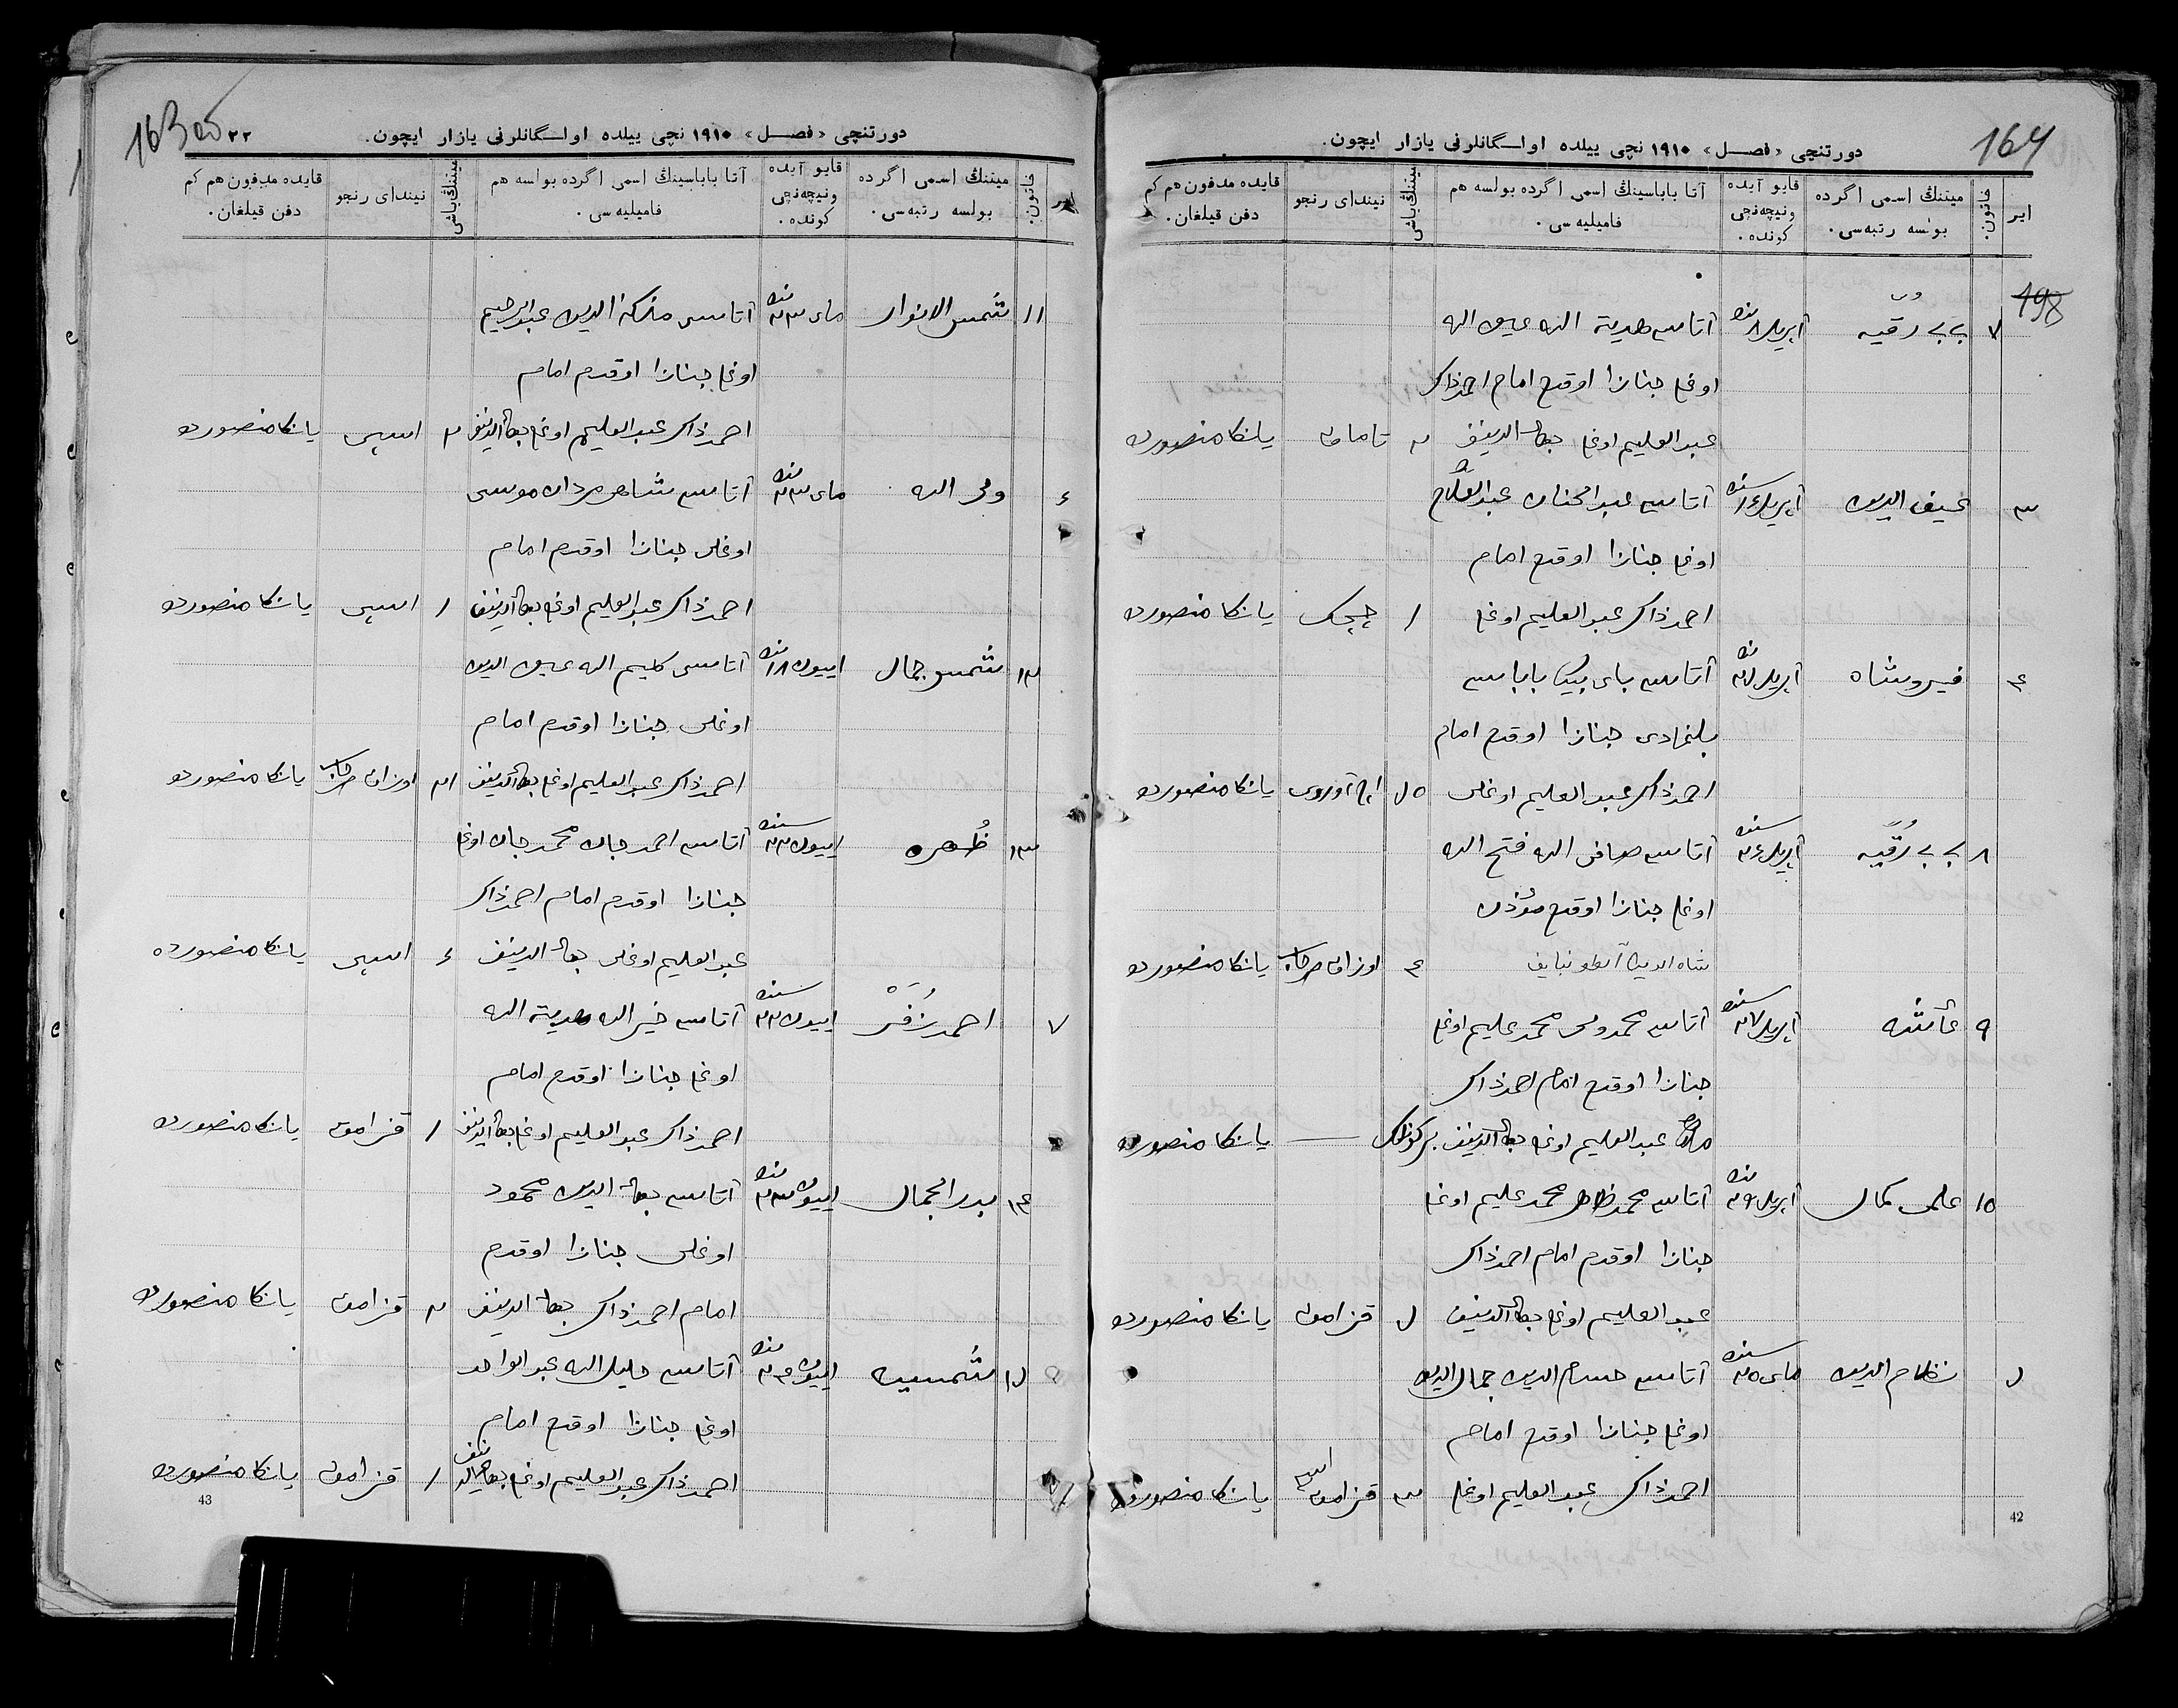 164
دورتنچی «فصل» ١٩١٠ نچی ییلده اولـگانلرنی یازار ایچون.
ایر
خاتون.
میتننڭ اسمی اگرده بولسه رتبه‌سی.
قایو آیده ونیچه‌نچی کونده.
آتا باباسینڭ اسمی اگرده بولسه هم فامیلیه سی.
میتننڭ یاشی
نیندای رنجو
قایده مدفون هم کم دفن قیلغان.
198
٧ بی بی رقیه آپریل ٨ آتاسی هدیة الله
اوغلی جنازا اوقدی امام احمدذاکر
عبدالعلیم اوغلی بهاءالدینف ٢ تاماق یانکا منصورده
٣ آپریل ١٤ آتاسی عبدالحنان
اوغلی جنازا اوقدی امام
احمدذاکر عبدالعلیم اوغلی ١ چچک یانکا منصورده
٤ آپریل آتاسی بای بیک باباسی
بلنمادی جنازا اوقدی امام
احمدذاکر عبدالعلیم اوغلی یانکا منصورده
٨ بی بی رقیه آپریل ٢٤ آتاسی فتح الله
اوغلی جنازا اوقدی مؤذن
٤ اوزاق یانکا منصورده
٩ عائشه آپریل ٢٧ آتاسی محمدولی محمدعلیم اوغلی
جنازا اوقدی امام احمدذاکر
عبدالعلیم اوغلی بهاءالدینف — یانکا منصورده
١٠ علمی کمال آپریل ٢٩ آتاسی محمدظاهر محمدعلیم اوغلی
جنازا اوقدی امام احمدذاکر
عبدالعلیم اوغلی بهاءالدینف قزامق یانکا منصورده
نظام الدین مای آتاسی حسام الدین جمال الدین
اوغلی جنازا اوقدی امام
احمدذاکر عبدالعلیم اوغلی ٣ قزامق یانکا منصورده
42
163 об
٢٢
دورتنچی «فصل» ١٩١٠ نچی ییلده اولـگانلرنی یازار ایچون.
ایر
خاتون.
میتننڭ اسمی اگرده بولسه رتبه‌سی.
قایو آیده ونیچه‌نچی کونده.
آتا باباسینڭ اسمی اگرده بولسه هم فامیلیه سی.
میتننڭ یاشی
نیندای رنجو
قایده مدفون هم کم دفن قیلغان.
١١ شمس الانوار مای ٢٣ آتاسی عبدالرحیم
اوغلی جنازا اوقدی امام
احمدذاکر عبدالعلیم اوغلی بهاءالدینف ٢ یانکا منصورده
ولی الله مای ٢٣ آتاسی شاهی مردان موسی
اوغلی جنازا اوقدی امام
احمدذاکر عبدالعلیم اوغلی بهاءالدینف ١ یانکا منصورده
١٢ شمس جمال اییون ١٨ آتاسی کلیم الله
اوغلی جنازا اوقدی امام
احمدذاکر عبدالعلیم اوغلی بهاءالدینف اوزاق یانکا منصورده
١٣ ظهره اییون ٢٢ آتاسی احمدجان محمدجان اوغلی
جنازا اوقدی امام احمدذاکر
عبدالعلیم اوغلی بهاءالدینف یانکا منصورده
٧ احمد زفر اییون ٢٢ آتاسی خیرالله هدیة الله
اوغلی جنازا اوقدی امام
احمدذاکر عبدالعلیم اوغلی بهاءالدینف ١ قزامق یانکا منصورده
١٤ بدرالجمال اییون ٢٣ آتاسی بهاءالدین محمود
اوغلی جنازا اوقدی
امام احمدذاکر بهاءالدینف ٢ قزامق یانکا منصورده
شمسیه اییون ٢٤ آتاسی خلیل الله عبدالواحد
اوغلی جنازا اوقدی امام
احمدذاکر عبدالعلیم اوغلی بهاءالدینف ١ قزامق یانکا منصورده
43